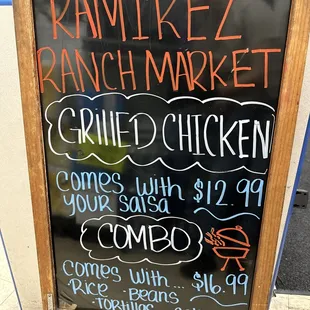 RAMIREZ
RANCH MARKET
GRILLED CHICKEN
COMES WITH $12.99
YOUR SALSA
COMBO
COMES WITH... $16.99
RICE · BEANS
· TORTILLAS